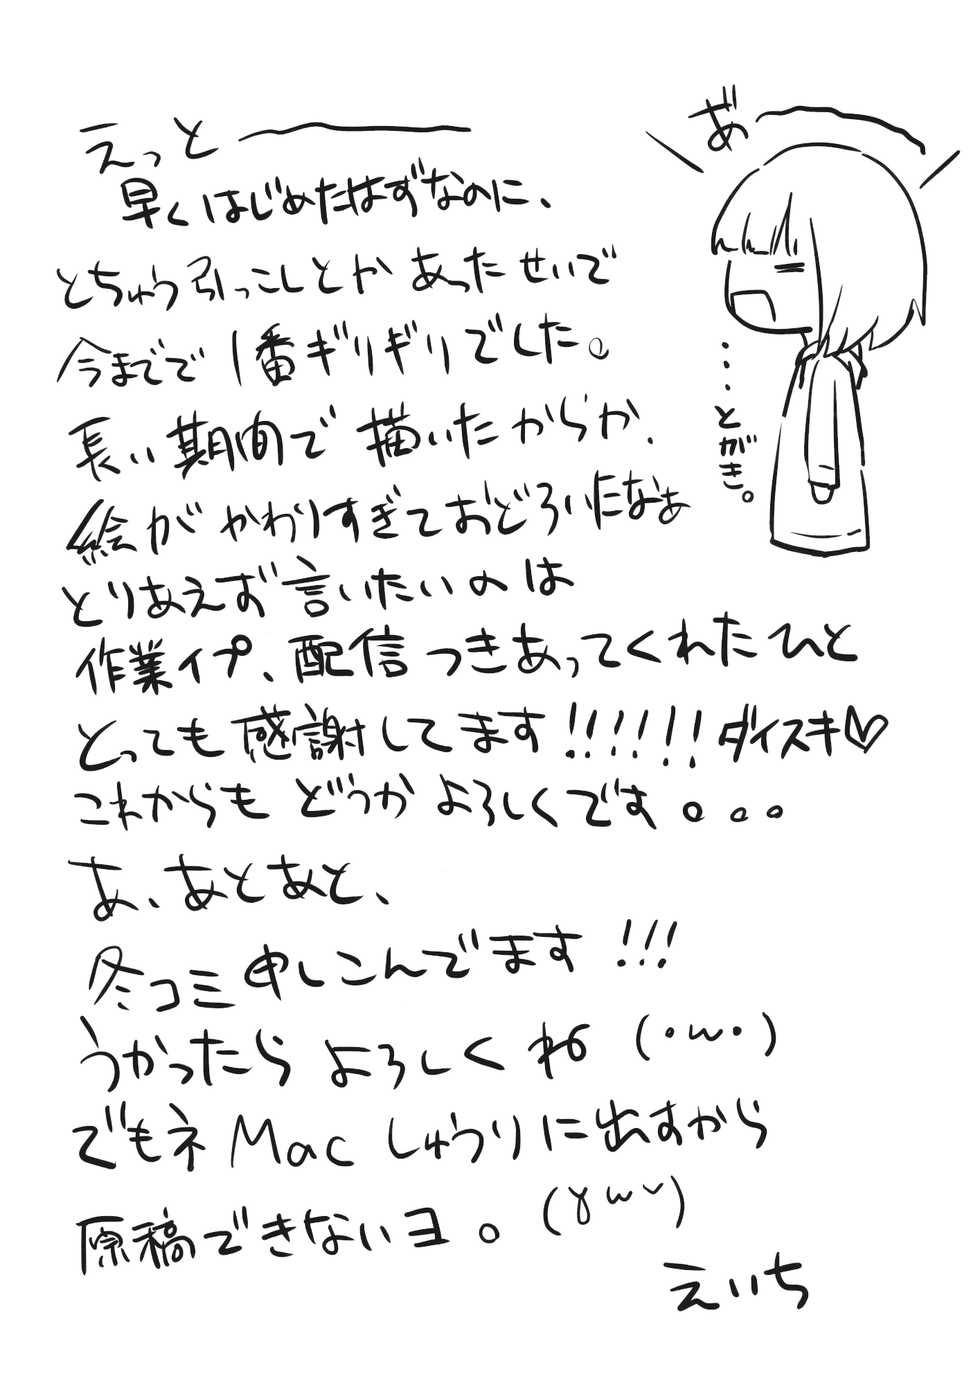 あ゛〜
…とがき。
えっと〜
早くはじめたはずなのに、
とちゅう引っこしとかあったせいで
今までで1番ギリギリでした。
長い期間で描いたからか、
絵がかわりすぎておどろいたなぁ
とりあえず言いたいのは
作業イプ、配信つきあってくれたひと
とっても感謝してます!!!!!!ダイスキ♡
これからもどうかよろしくです。。。
あ、あとあと、
冬コミ申しこんでます!!!
うかったらよろしくね(・ω・)
でもネMacしゅうりに出すから
原稿できないヨ。(γω˘)
えいち